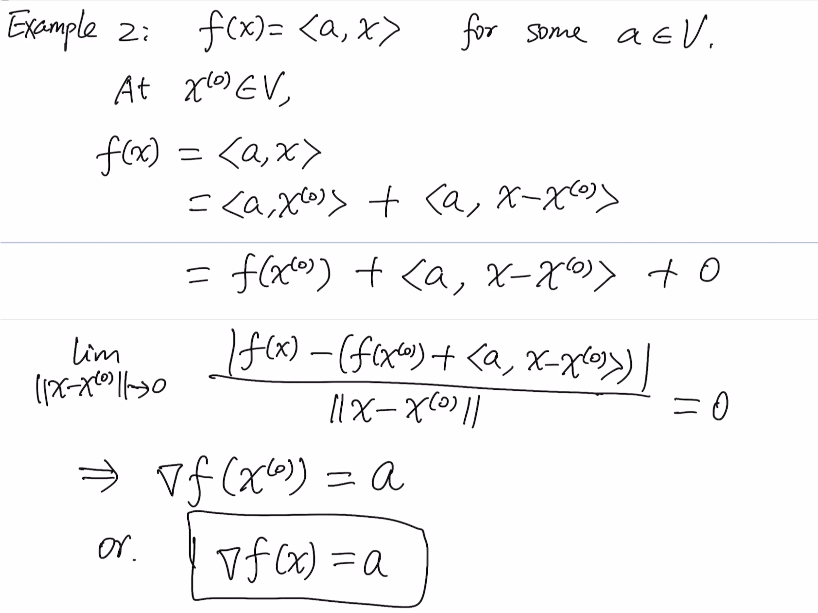 Example 2: f(x) = <a, x> for some a ∈ V.
At x⁽⁰⁾ ∈ V,
f(x) = <a, x>
= <a, x⁽⁰⁾> + <a, x - x⁽⁰⁾>
= f(x⁽⁰⁾) + <a, x - x⁽⁰⁾> + 0
lim ||x - x⁽⁰⁾|| → 0 |f(x) - (f(x⁽⁰⁾) + <a, x - x⁽⁰⁾>)| / ||x - x⁽⁰⁾|| = 0
⇒ ∇f(x⁽⁰⁾) = a
or. ∇f(x) = a